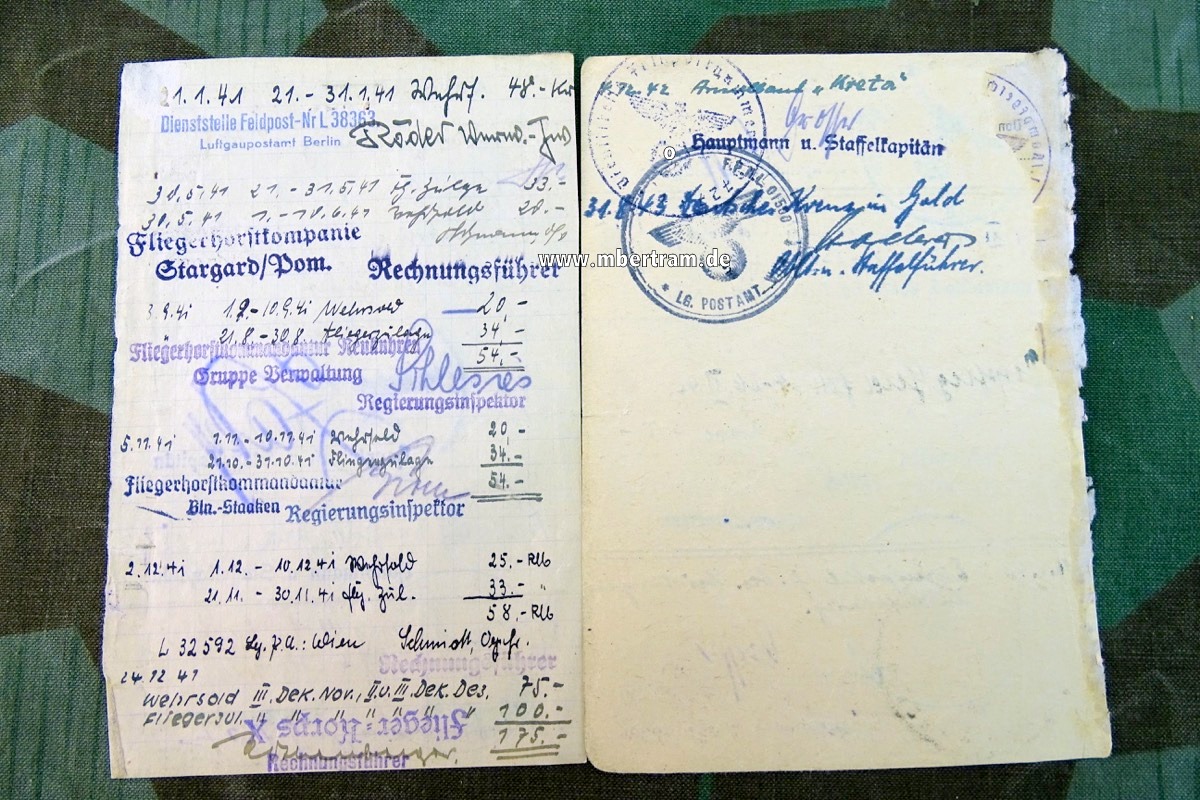 21.1.41 21.- 31.1.41 Wehrs. 48.-
Dienststelle Feldpost-Nr L 38363
Luftgaupostamt Berlin
Röder
30.5.41 21.- 31.5.41 33.-
30.5.41 1.- 10.6.41 Wehrsold 20.-
Fliegerhorstkompanie
Stargard/Pom. Rechnungsführer
3.9.41 1.9.-10.9.41 Wehrsold 20,-
" 21.8.-30.8. Fliegerzulage 34,-
54,-
Fliegerhorstkommandantur Neukuhren
Gruppe Verwaltung
Regierungsinspektor
5.11.41 1.11.-10.11.41 Wehrsold 20,-
21.10.-31.10.41 Fliegerzulage 34.-
54.-
Fliegerhorstkommandantur
Bln.-Staaken Regierungsinspektor
2.12.41 1.12. - 10.12.41 Wehrsold 25.-
21.11. - 30.11.41 flg. Zul. 33.- "
58.-
L 32592 Lg.P.A.: Wien Schmidt,
Rechnungsführer
24.12.41
Wehrsold III. Dek. Nov., I. u. III. Dek. Dez. 75.-
Fliegerzul. " " " " " " " 100.-
175.-
Flieger-Korps X
Rechnungsführer
42 Ärmelband „Kreta"
Hauptmann u. Staffelkapitän
31.8.43 Deutsches Kreuz in Gold
Oblt. u. Staffelführer.
LG. POSTAMT
www.mbertram.de